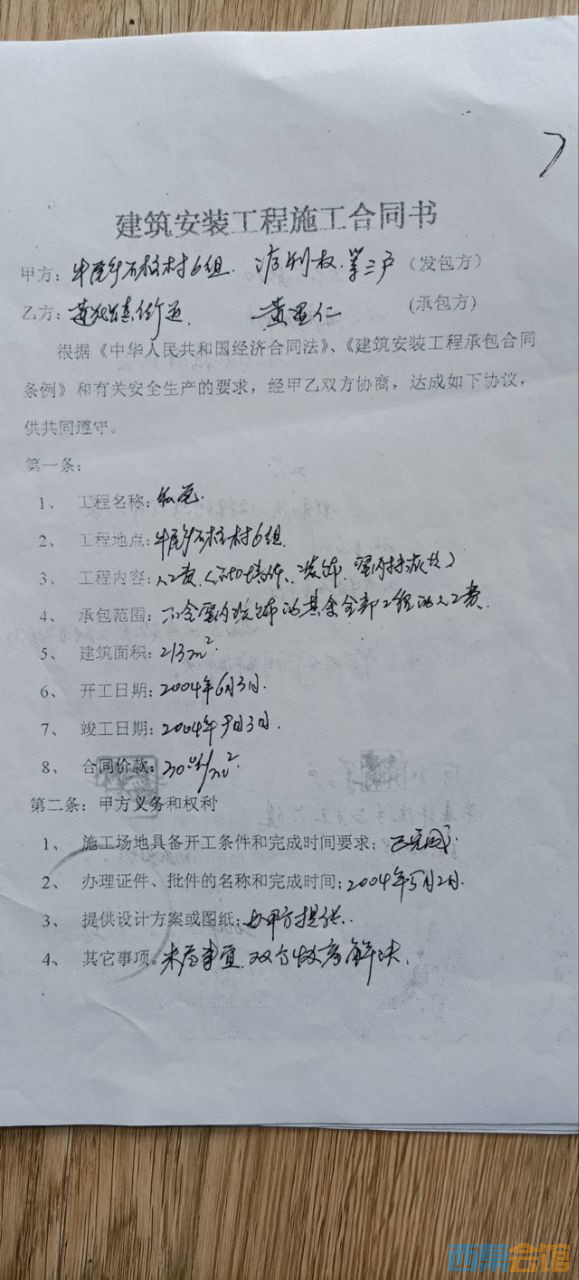 建筑安装工程施工合同书
甲方：牛尾乡石柱村6组. 权. 第三户（发包方）
乙方： 黄显仁 （承包方）
根据《中华人民共和国经济合同法》、《建筑安装工程承包合同
条例》和有关安全生产的要求，经甲乙双方协商，达成如下协议，
供共同遵守。
第一条：
1、 工程名称：
2、 工程地点：牛尾乡石柱村6组.
3、 工程内容：人工费（ 装饰、室内
4、 承包范围：不含室内装饰的其余全部工程的人工费.
5、 建筑面积：213m².
6、 开工日期：2004年6月3日.
7、 竣工日期：2004年9月3日.
8、 合同价款： /m²
第二条：甲方义务和权利
1、 施工场地具备开工条件和完成时间要求：已完成.
2、 办理证件、批件的名称和完成时间：2004年5月2日.
3、 提供设计方案或图纸：由甲方提供.
4、 其它事项。未尽事宜.双方协商解决.
西祠会馆